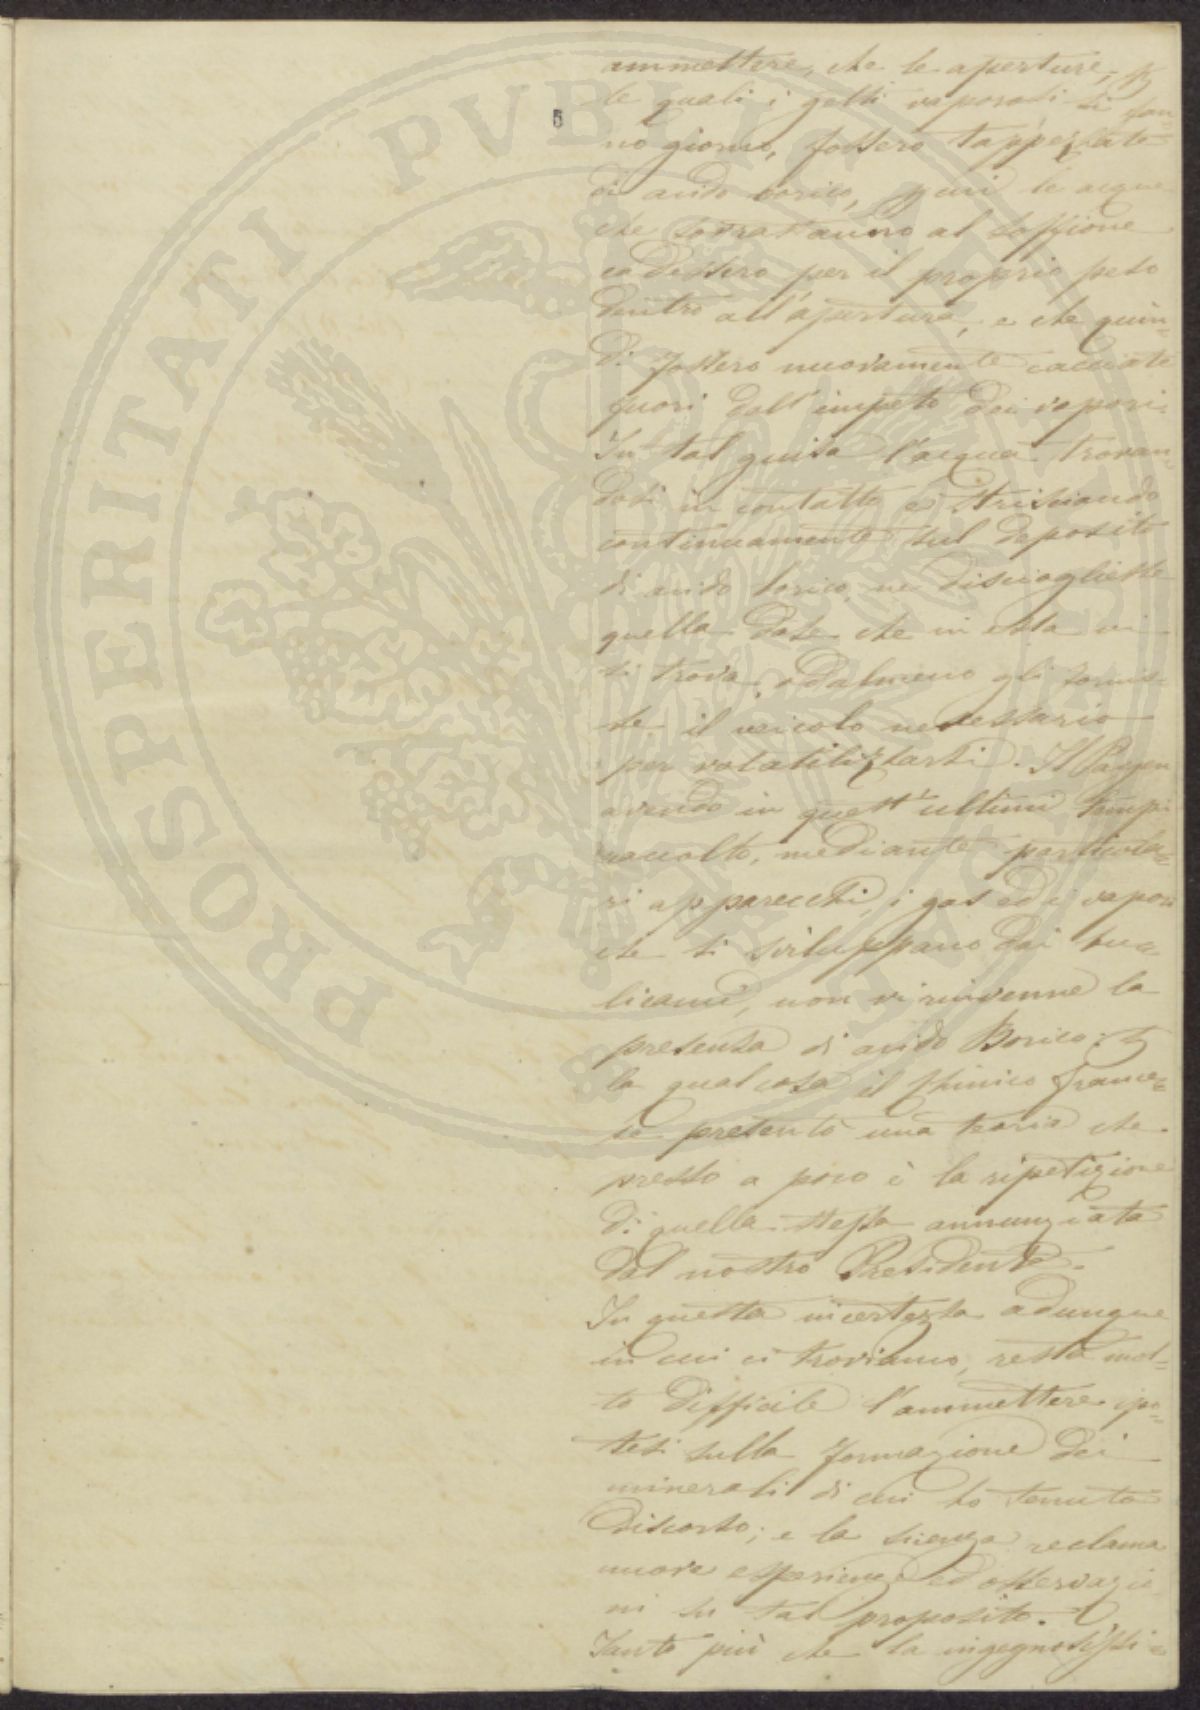 ammettere, che le aperture, p
le quali i getti vaporosi si fan=
no giorno, fossero tappezzate
di acido borico, quei le acque
che sovrastanno al soffione
cadessero per il proprio peso
dentro all'apertura, e che quin=
di fossero nuovamente cacciate
fuori dall'impeto dei vapori.
In tal guisa l'acqua trovan=
dosi in contatto e strisciando
continuamente sul deposito
di acido borico, ne disciogliesse
quella dose che in essa vi
si trova, odalmeno gli fornis=
se il veicolo necessario
per volatilizzarsi. Il Payen
avendo in quest'ultimi tempi
raccolto, mediante particola=
ri apparecchi, i gas ed i vapori
che si sviluppano dai bu=
licami, non vi rinvenne la
presenza di acido Borico; p
la qual cosa il Chimico france=
se presentò una teoria che
presso a poco è la ripetizione
di quella stessa annunziata
dal nostro Presidente.
In questa incertezza adunque
in cui ci troviamo, resta mol=
to difficile l'ammettere ipo=
tesi sulla formazione dei
minerali di cui ho tenuto
discorso; e la scienza reclama
nuove esperienze ed osservazio
ni su tal proposito.
Tanto più che la ingegnosissi=
PROSPERITATI PVBLICAE